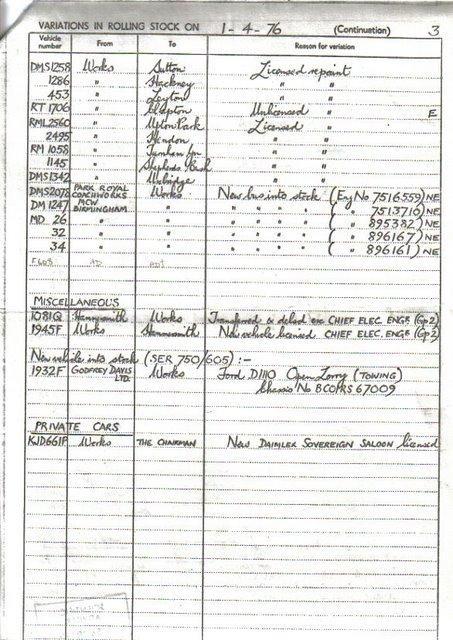 VARIATIONS IN ROLLING STOCK ON 1-4-76 (Continuation) 3
Vehicle number From To Reason for variation
DMS1258 Works Sutton Licensed repaint
1286 " Hackney " "
453 " Leyton " "
RT 1706 " Clapton Unlicensed " E
RML2560 " Upton Park Licensed "
2495 " Hendon " "
RM 1058 " Turnham Grn " "
1145 " Shepherds Bush " "
DMS1342 " Uxbridge " "
DMS2078 PARK ROYAL COACHWORKS Works New bus into stock (Eng No 7516559) NE
DM 1247 MCW BIRMINGHAM " " " " " ( " 7513716) NE
MD 26 " " " " " " ( " 895382) NE
32 " " " " " " ( " 896167) NE
34 " " " " " " ( " 896161) NE
MISCELLANEOUS
1081Q Hammersmith Works Transferred & delsd exc CHIEF ELEC. ENGR (Gp 2)
1945F Works Hammersmith New vehicle licenced CHIEF ELEC. ENGR (Gp 2)
New vehicle into stock (SER 750/605) :-
1932F GODFREY DAVIS LTD. Works Ford D1110 Open Lorry (TOWING)
Chassis No BCOPRS 67009
PRIVATE CARS
KJD661P Works THE CHAIRMAN New DAIMLER SOVEREIGN SALOON licensed